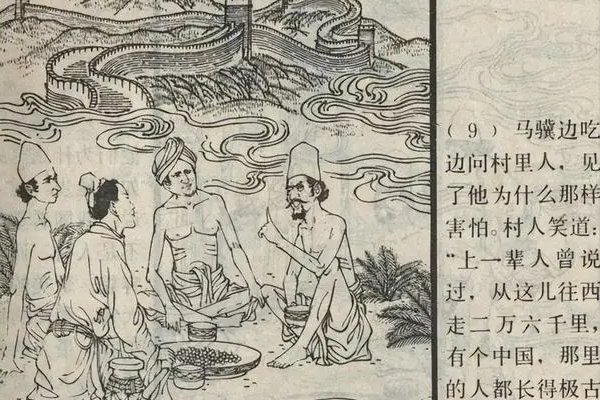 (9) 马骥边吃
边问村里人，见
了他为什么那样
害怕。村人笑道：
“上一辈人曾说
过，从这儿往西
走二万六千里，
有个中国，那里
的人都长得极古